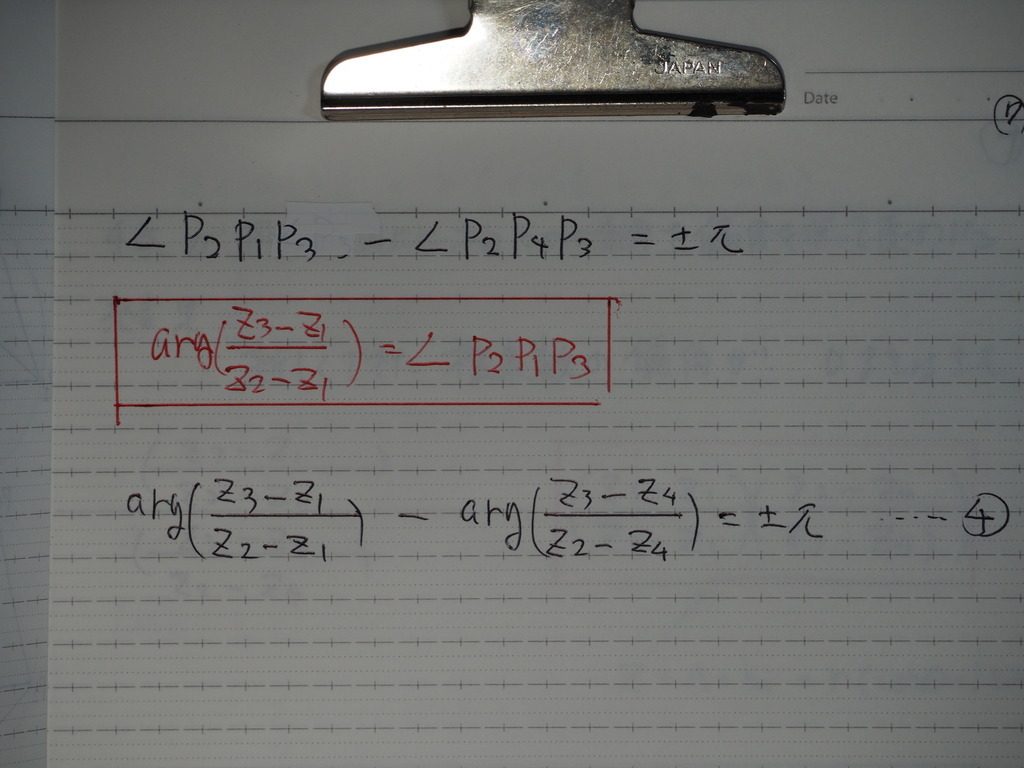 JAPAN
Date
∠P₂P₁P₃ - ∠P₂P₄P₃ = ±π
arg((z₃-z₁)/(z₂-z₁)) = ∠P₂P₁P₃
arg((z₃-z₁)/(z₂-z₁)) - arg((z₃-z₄)/(z₂-z₄)) = ±π ‥‥- ④